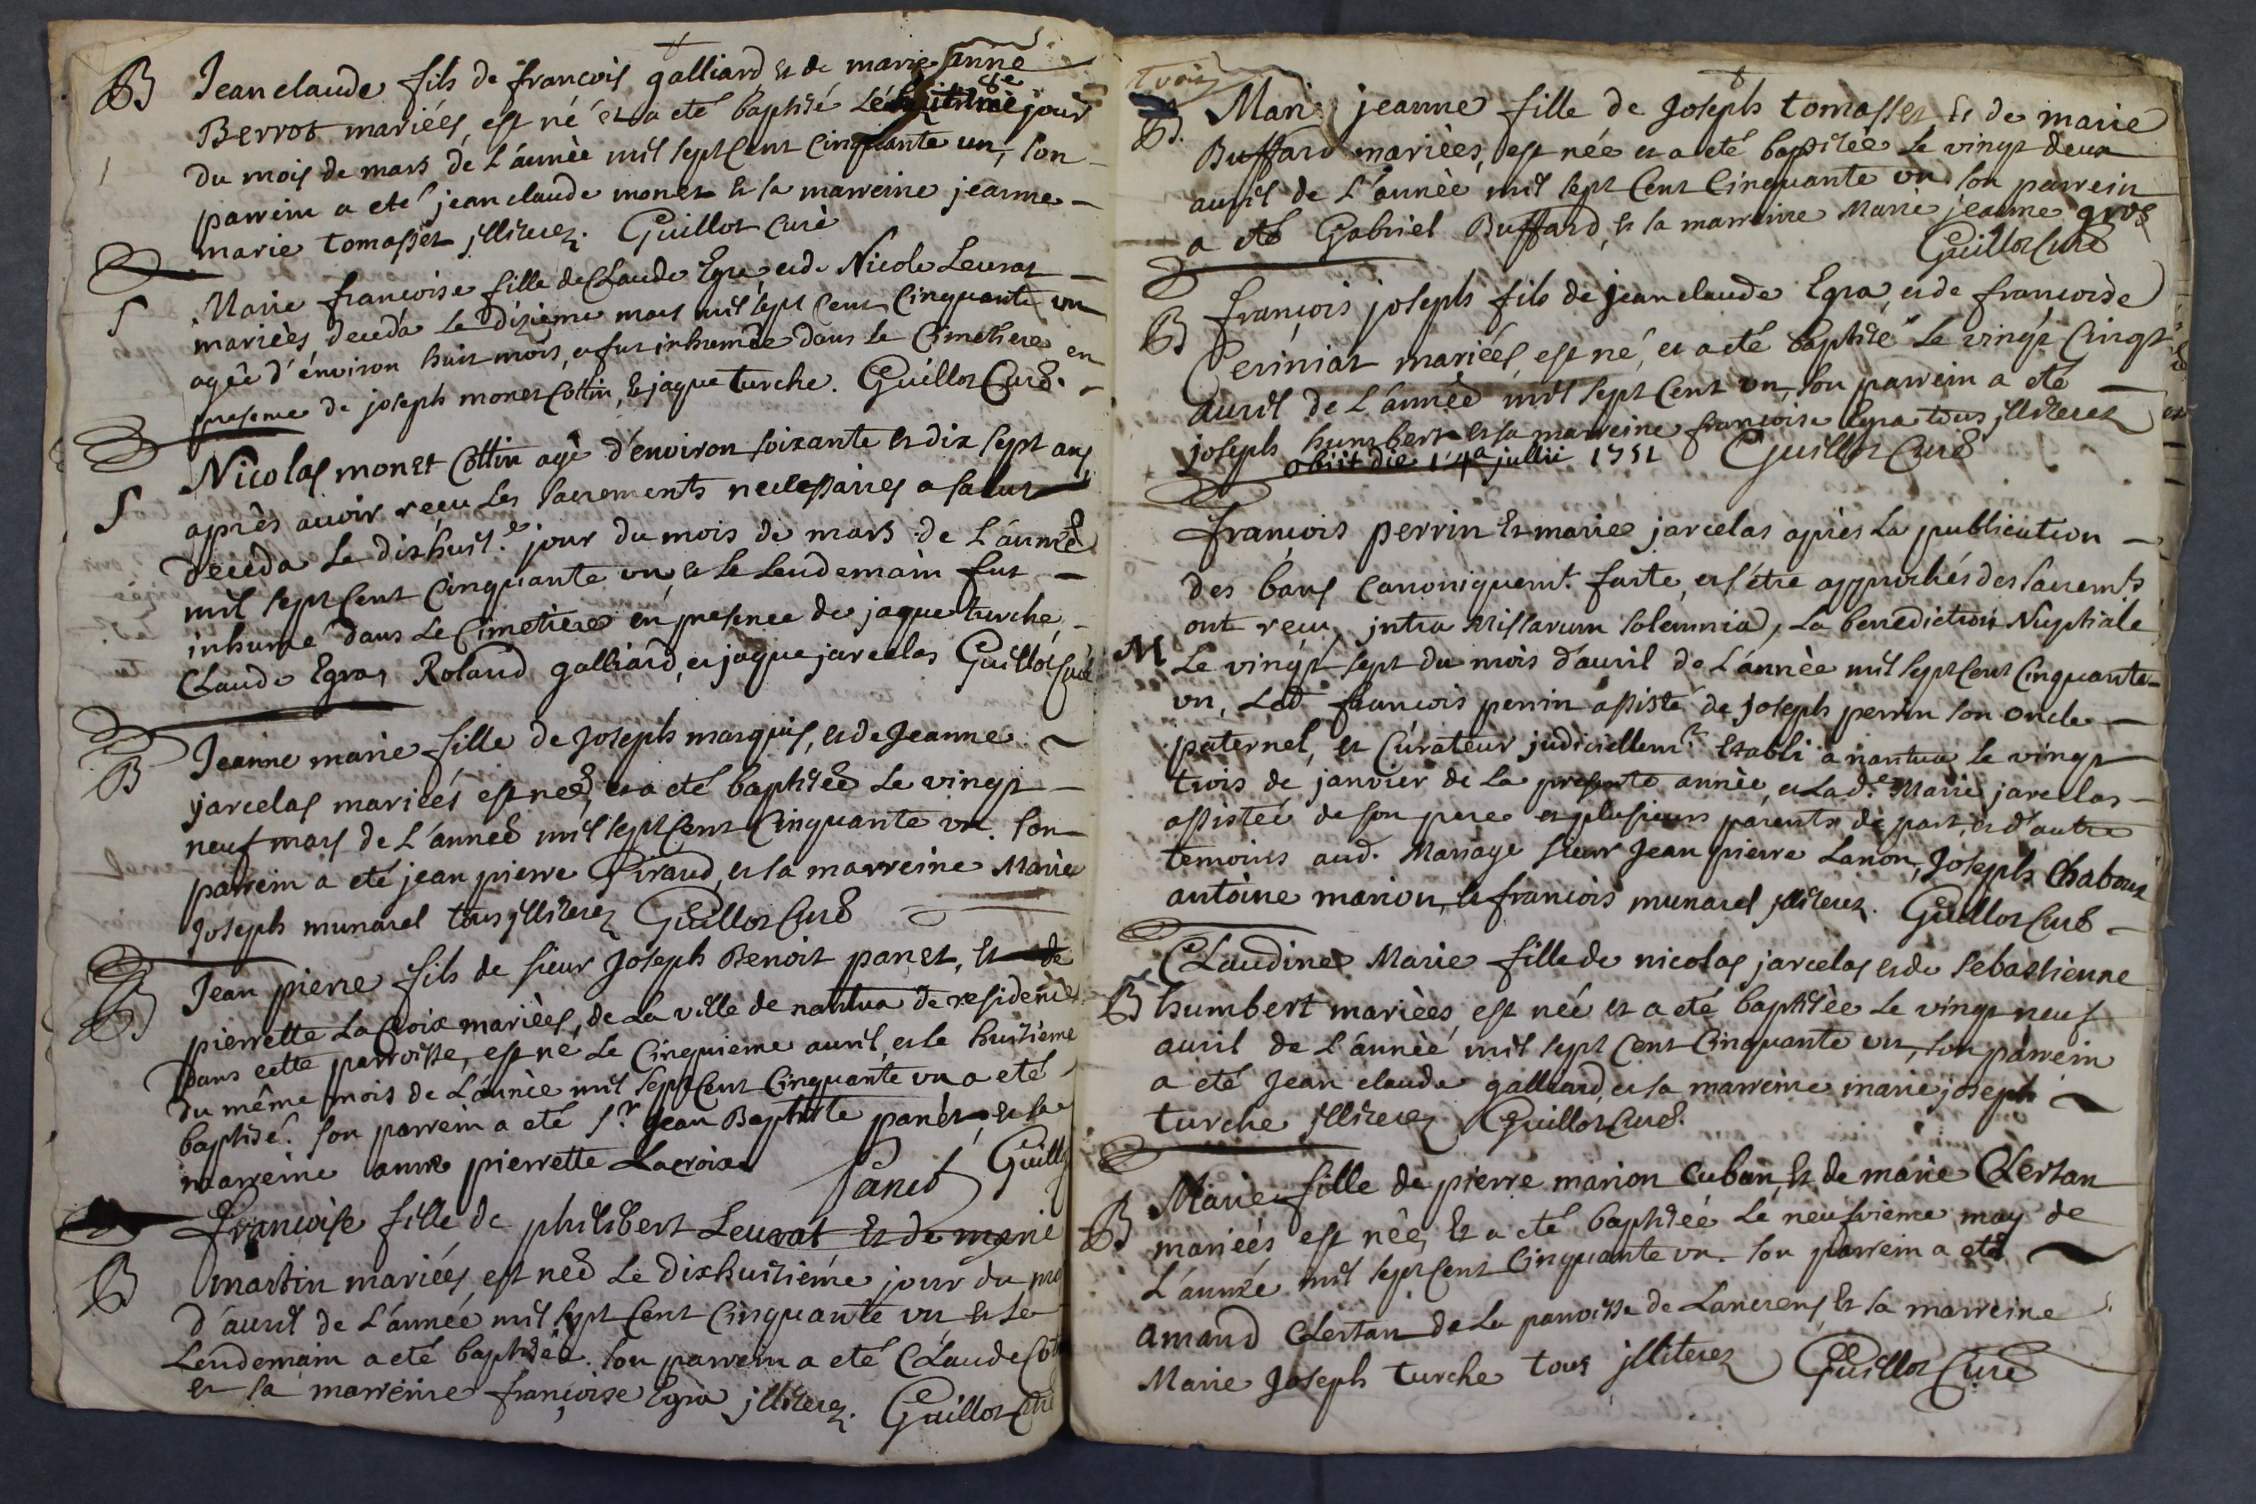 B Jean claude fils de françois galliard et de marie anne
Berrot mariéés, est né et a eté baptisé jour
du mois de mars de L'année mil sept Cent Cinquante un, son
parrein a eté jean claude monet et la marreine jeanne
marie tomasset jlliterez. Guillot Curé
S Marie françoise fille de Claude Egra et de Nicole Leurat
mariées deceda Le dizieme mars mil sept Cent Cinquante un
agée d'énviron huit mois, et fut inhumée dans le Cimetiere en
presence de joseph monet Cottin, et jaque turche. Guillot Curé.
S Nicolas monet Cottin agé d'environ soixante et dix sept ans
après avoir reçu Les sacrements necessaires a salut
deceda Le dixhuit.e jour du mois de mars de L'année
mil sept Cent Cinquante un et le Lendemain fut
inhumé dans Le Cimetière en presence de jaque turche
Claude Egra, Roland galliard, et jaque jarcelas Guillot Curé
B Jeanne marie fille de Joseph marquis, et de Jeanne
jarcelas mariéés est neé, et a eté baptisée Le vingt
neuf mars de L'année mil sept Cent Cinquante un. son
parrein a eté jean pierre Giraud, et la marreine Marie
Joseph munarel tous jlliterez Guillot Curé
B Jean pierre fils de sieur Joseph Benoit panet, et de
pierrette La Croix mariées, de La ville de nantua de residence
dans cette parroisse, est né Le Cinquieme avril, et le huitieme
du même mois de L'année mil sept Cent Cinquante un a eté
baptisé. son parrein a eté s.r Jean Baptiste panet, et la
marreine anne pierrette Lacroix Panet Guill
françoise fille de philibert Leurat et de marie
B martin mariéés, est neé Le dixhuitiéme jour du mo
d'avril de L'année mil sept Cent Cinquante un et le
Lendemain a eté baptisée. son parrein a eté Claude Cot
et la marreine françoise Egra jlliterez. Guillot Curé
trois
B. Marie jeanne fille de Joseph tomasset, et de marie
Buffard mariées, est née et a eté baptisée Le vingt deux
avril de L'année mil sept Cent Cinquante un son parrein
a eté Gabriel Buffard, et la marreine Marie jeanne gros
Guillot Curé
B françois joseph fils de jean claude Egra, et de françoise
Periniat mariéés, est né, et a eté baptisé Le vingt Cinq
avril de L'année mil sept Cent un, son parrein a eté
joseph humbert et sa marreine françoise Egra tous jlliterez
obiit die 14a jullii 1751 Guillot Curé
françois perrin et marie jarcelas après La publication
des bans Canoniquemt. faite, et s'étre approchés des sacremts
ont reçu, jntra Missarum solemnia, La benediction Nuptiale
M Le vingt sept du mois d'avril de L'année mil sept Cent Cinquante
un, Led. françois perrin assisté de Joseph perrin son oncle
paternel, et Curateur judiciellemt. etabli a nantua Le vingt
trois de janvier de La presente année, et Lad.e Marie jarcelas
assistée de son pere et plusieurs parents de part, et d'autre
temoins aud. Mariage sieur Jean pierre Lanon, Joseph Chaboux
antoine marion, et françois munarel jlliterez. Guillot Curé
Claudine Marie fille de nicolas jarcelas et de Sebastienne
B humbert mariées, est née et a eté baptisée Le vingt neuf
avril de L'année mil sept Cent Cinquante un, son parrein
a eté Jean claude galliard, et la marreine marie joseph
turche jlliterez Guillot Curé.
Marie fille de pierre marion Cuban, et de marie Clertan
B mariéés est née, et a eté baptisée Le neufvieme may de
L'année mil sept Cent Cinquante un. son parrein a eté
amand Clertan de La parroisse de Lancrens, et la marreine
Marie Joseph turche tous jlliterez Guillot Curé